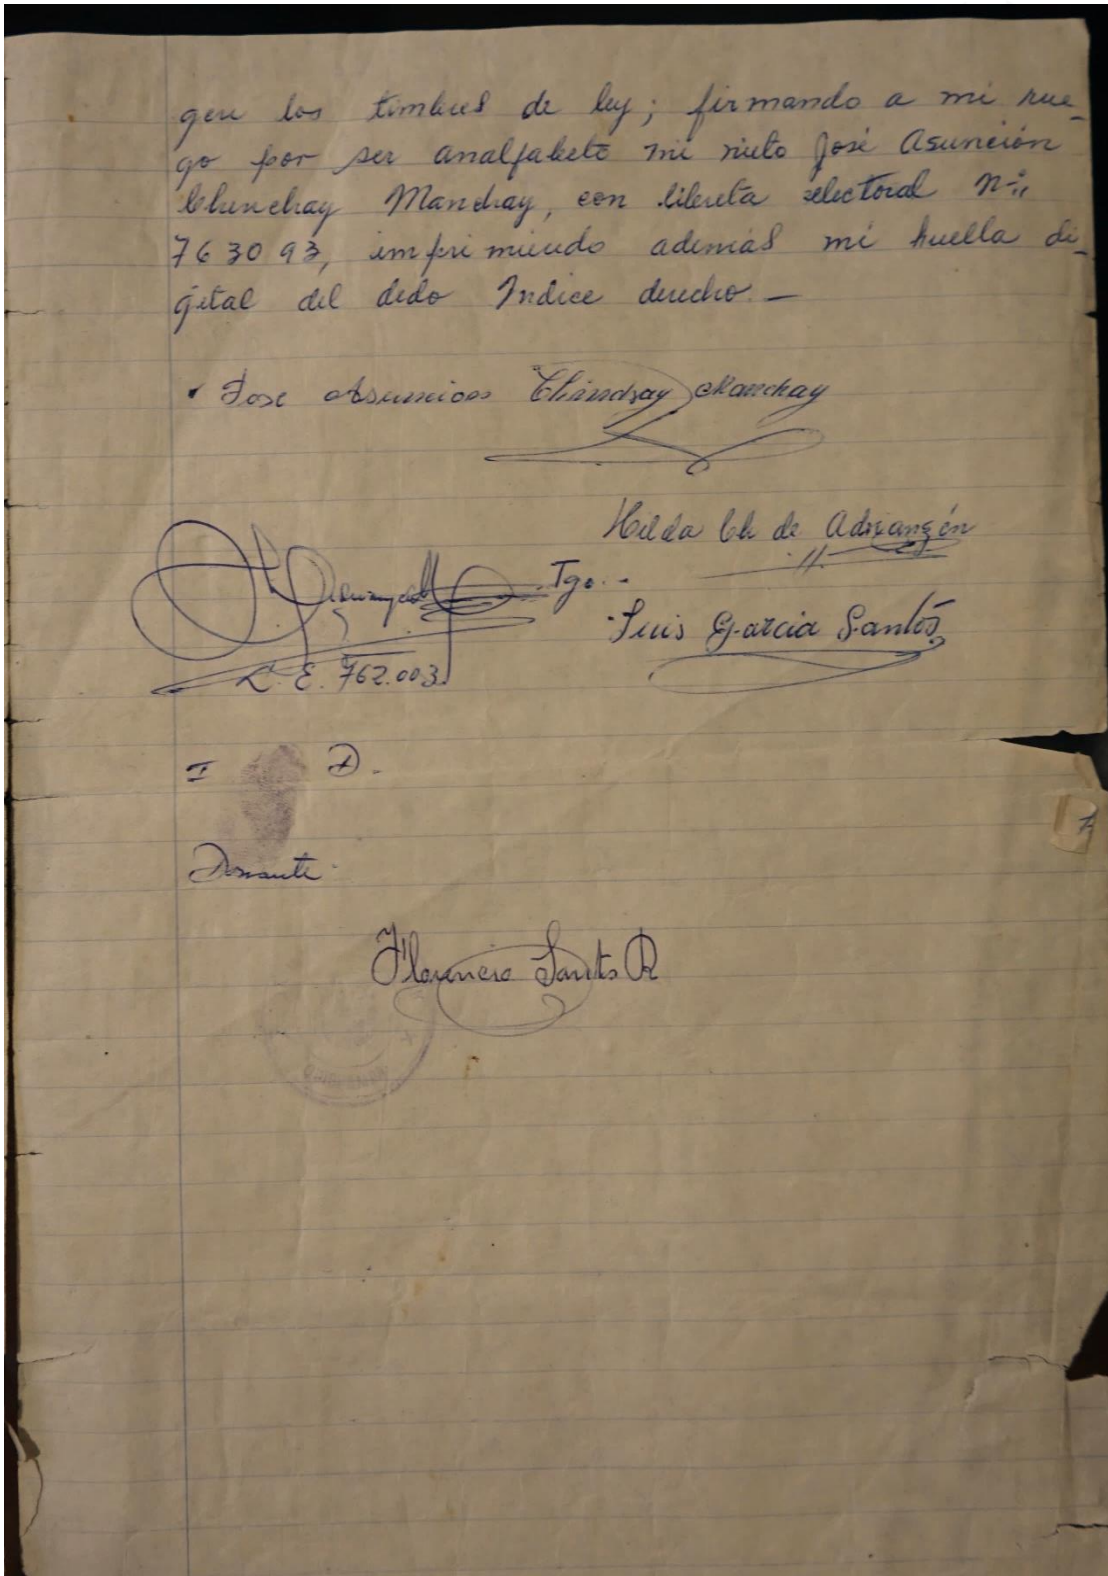 gen los timbres de ley; firmando a mi rue-
go por ser analfabeto mi nieto José Asunción
Chinchay Manchay, con libreta electoral Nº
763093, imprimiendo además mi huella di-
gital del dedo Indice derecho.—
Jose Asuncion Chinchay Manchay
Hilda Ch de Adrianzén
Tgo.-
Luis Garcia Santos
L. E. 762.003
I D.
Donante
Florencio Santos R